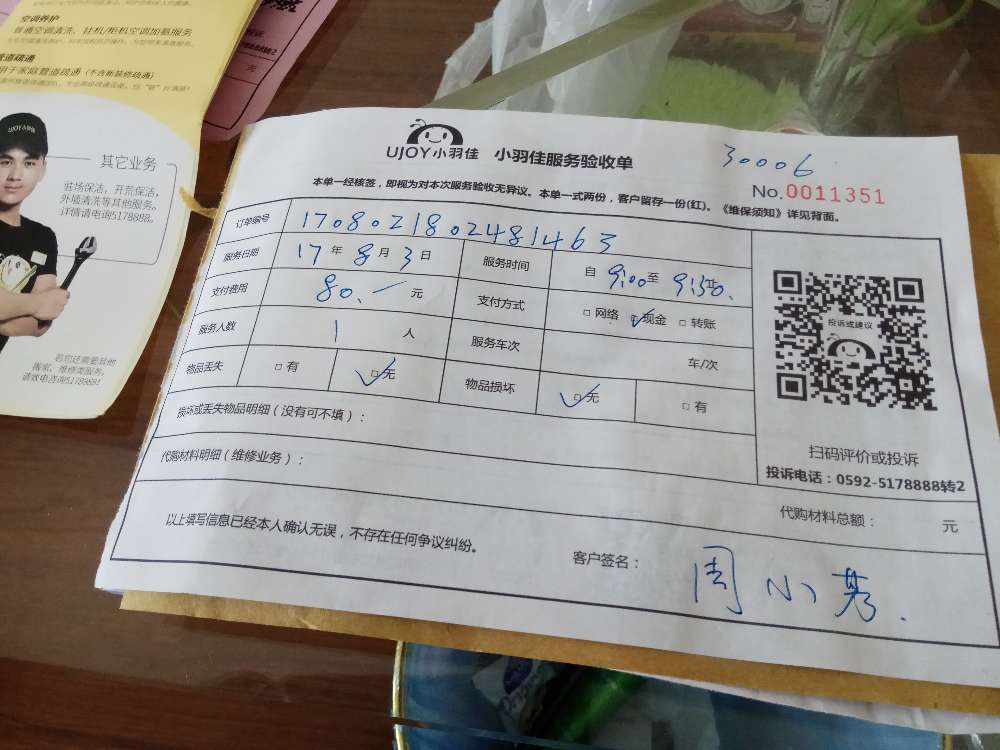 空调养护
普通空调清洗、挂机/柜机空调加氨服务
管道疏通
用于家庭管道疏通（不含断裂修疏通）
转2
元
UJOY小羽佳
其它业务
驻场保洁，开荒保洁，
外墙清洗等其他服务。
详情请电询5178888。
若您还需要其他
搬家、维修类服务，
请致电咨询5178888！
UJOY小羽佳 小羽佳服务验收单
30006
No.0011351
本单一经核签，即视为对本次服务验收无异议。本单一式两份，客户留存一份(红)。《维保须知》详见背面。
订单编号 170802180248１463
服务日期 17 年 8 月 3 日 服务时间 自 9:00 至 9:30.
支付费用 80.— 元 支付方式 □网络 ☑现金 □转账
服务人数 1 人 服务车次 车/次
物品丢失 □有 ☑无 物品损坏 ☑无 □有
损坏或丢失物品明细（没有可不填）：
代购材料明细（维修业务）：
投诉或建议
扫码评价或投诉
投诉电话：0592-5178888转2
代购材料总额： 元
以上填写信息已经本人确认无误，不存在任何争议纠纷。
客户签名： 周小